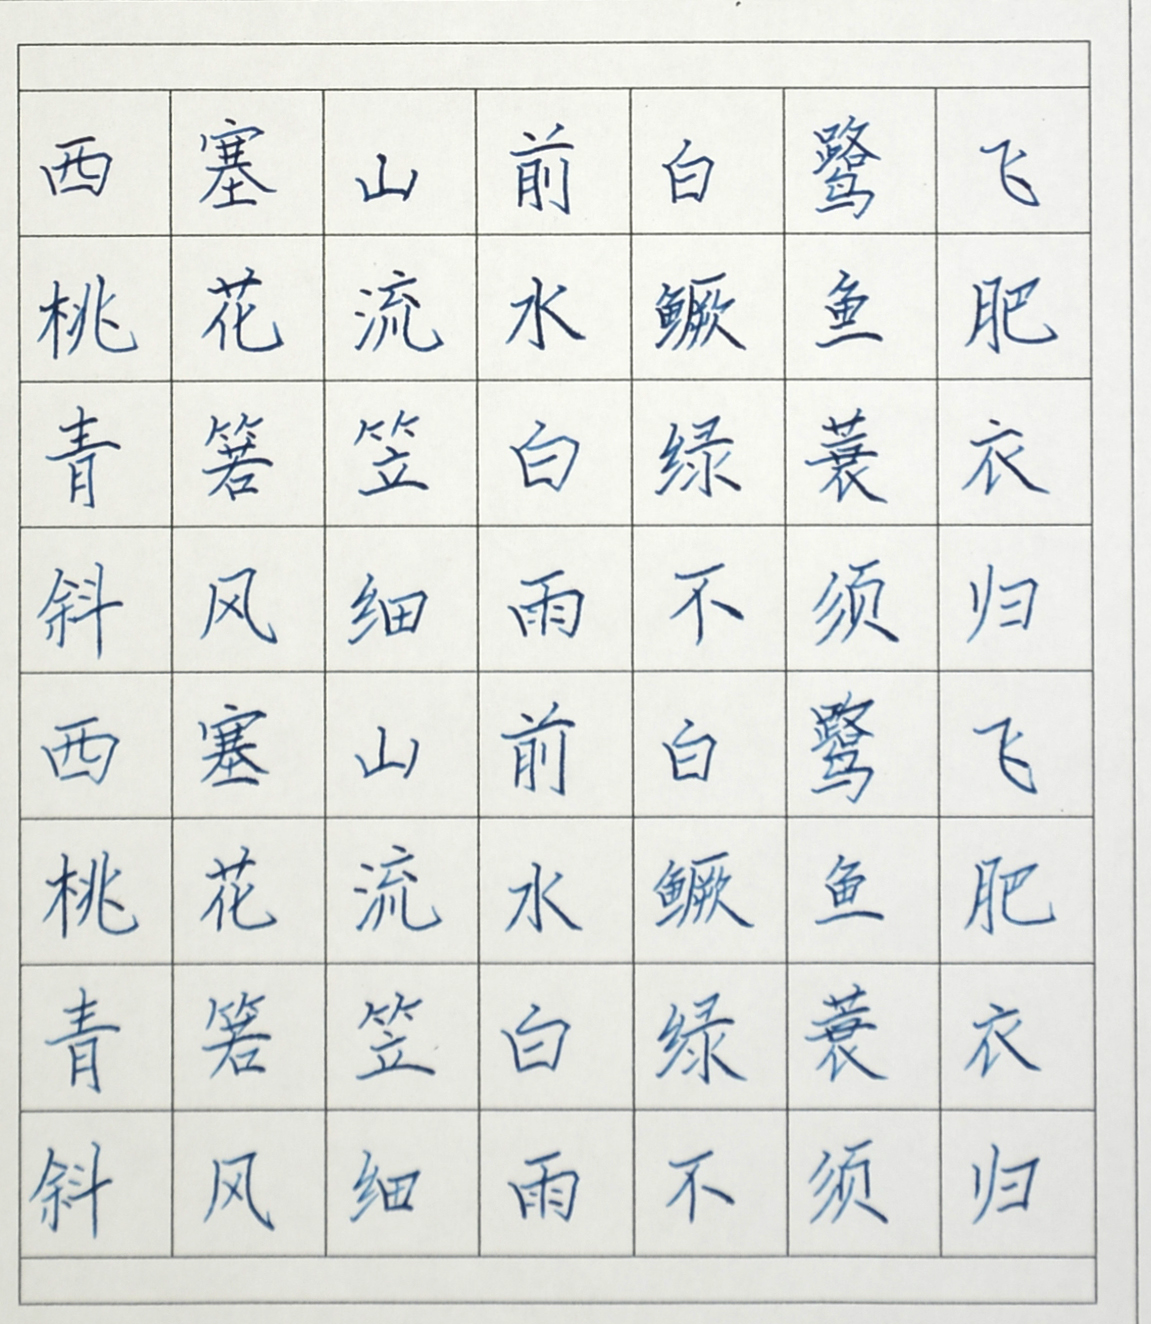 西塞山前白鹭飞
桃花流水鳜鱼肥
青箬笠白绿蓑衣
斜风细雨不须归
西塞山前白鹭飞
桃花流水鳜鱼肥
青箬笠白绿蓑衣
斜风细雨不须归